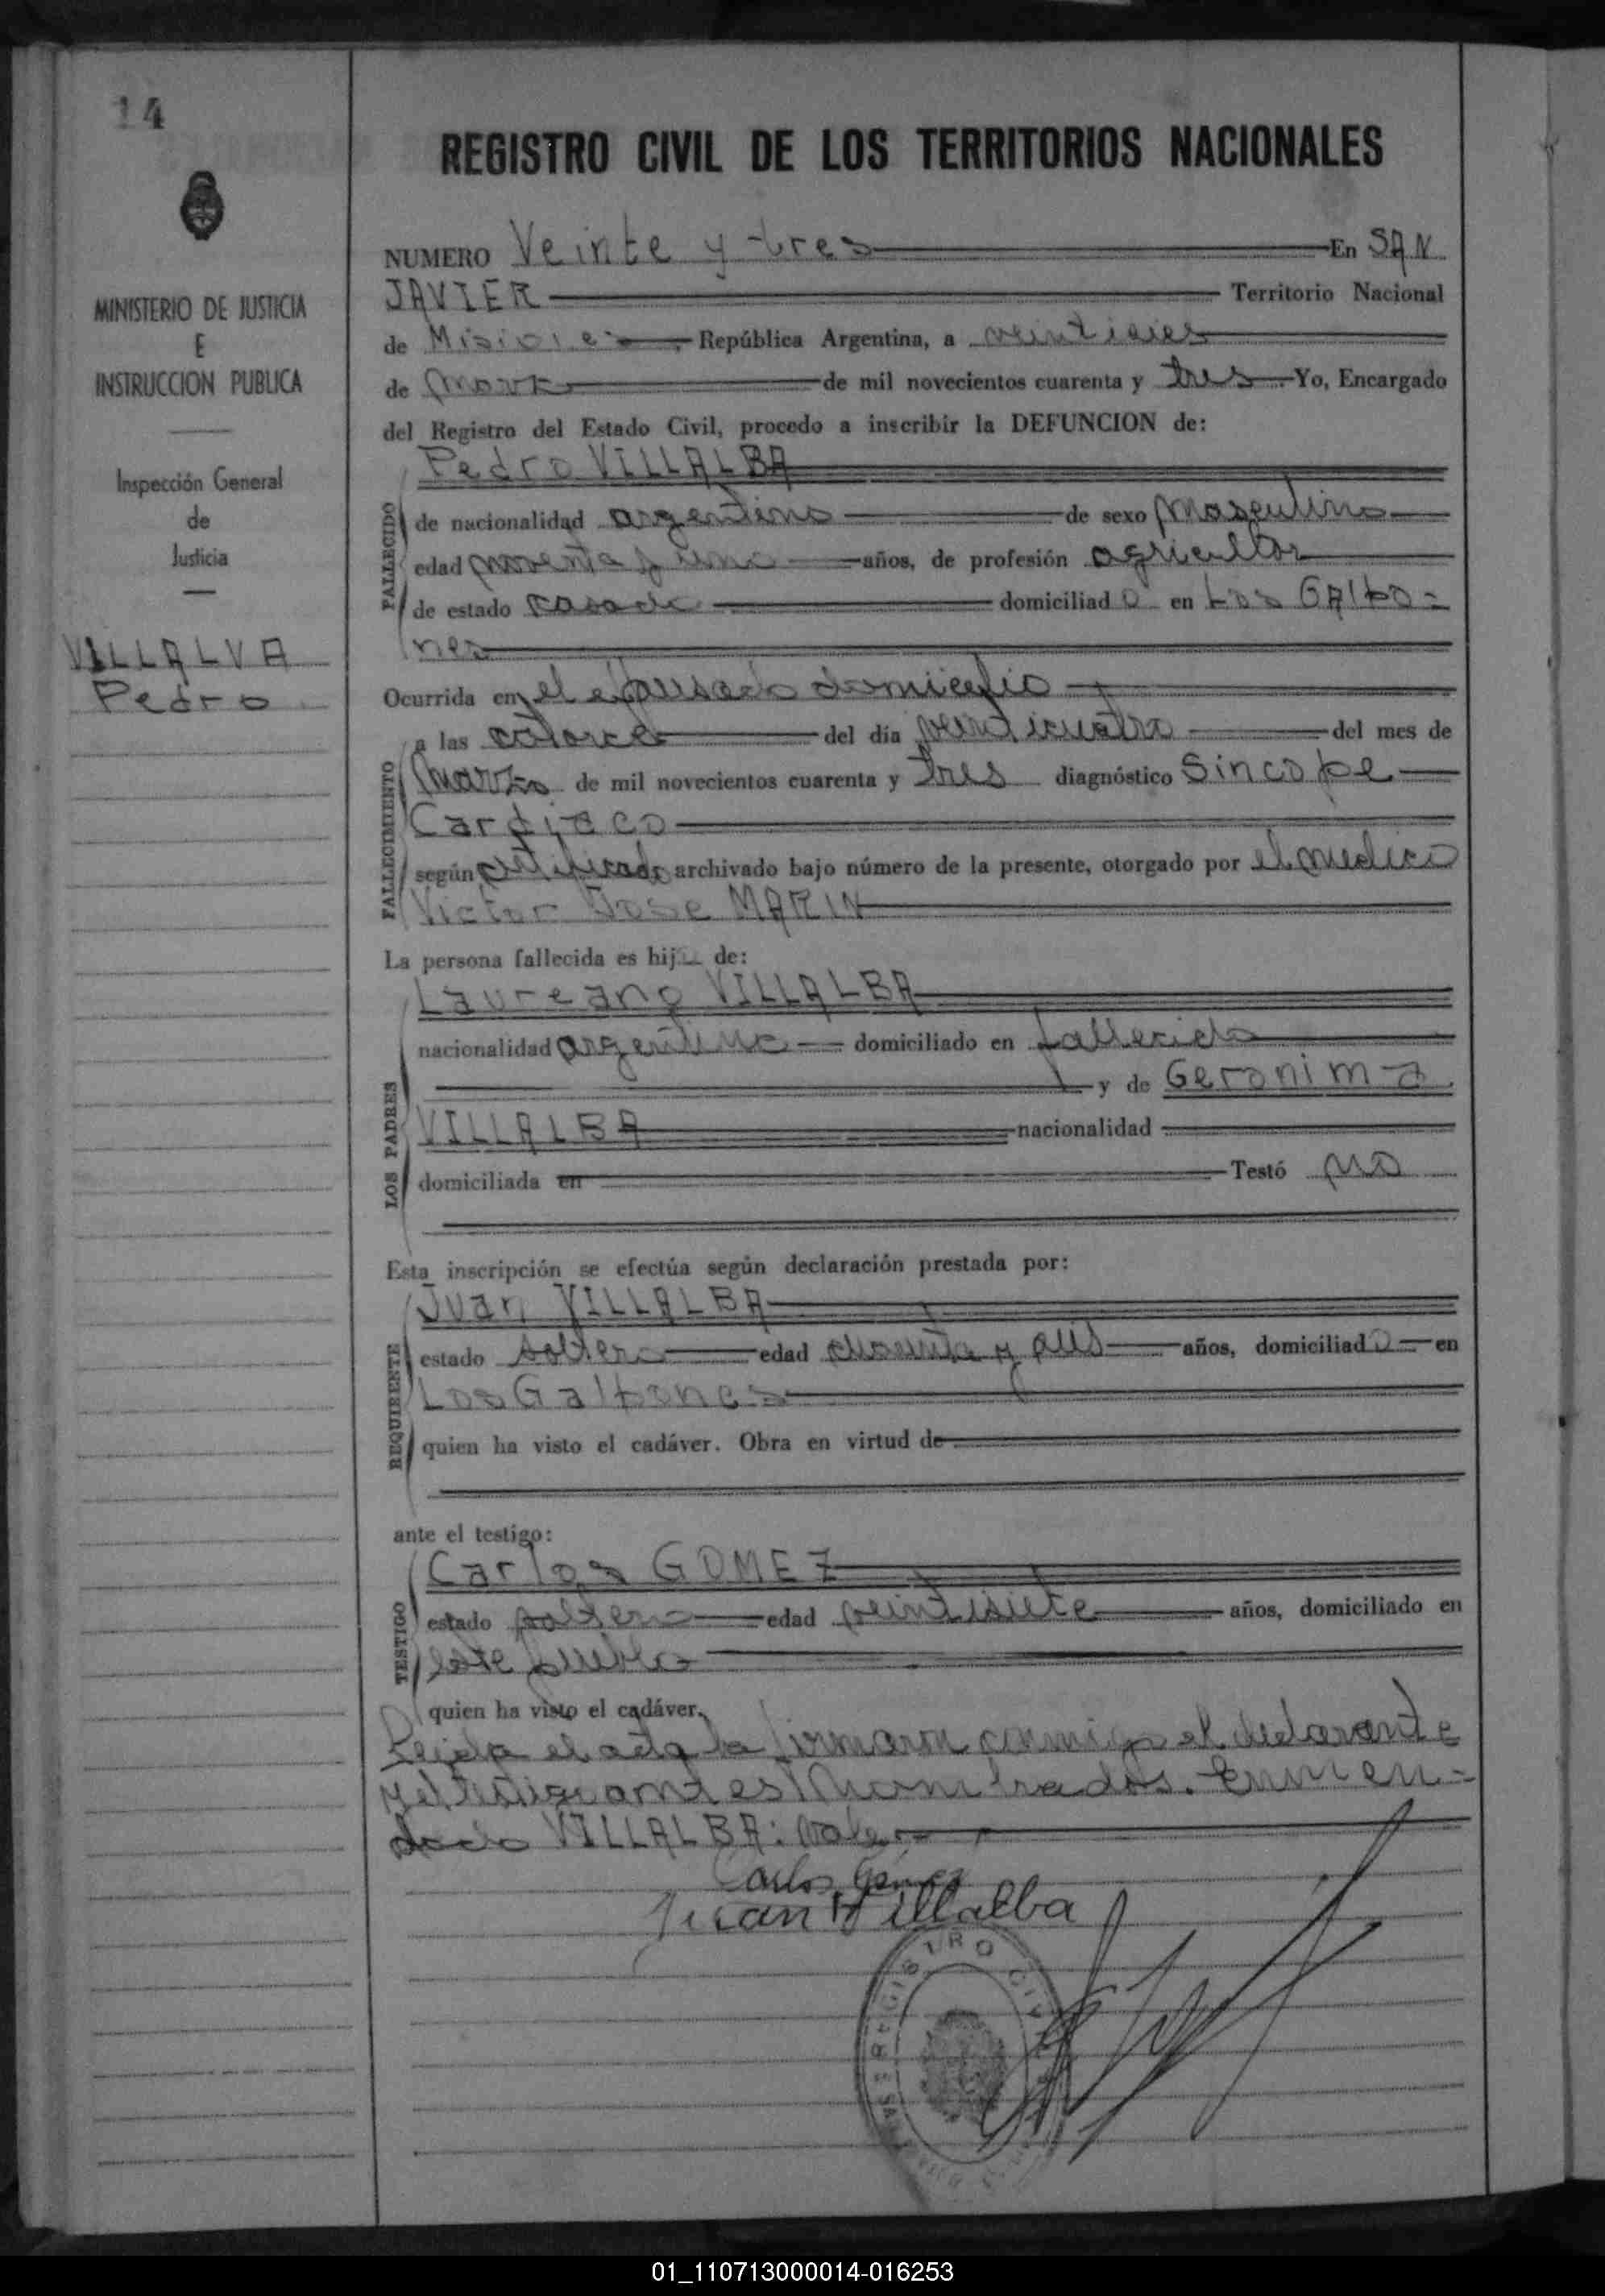 14
REGISTRO CIVIL DE LOS TERRITORIOS NACIONALES
MINISTERIO DE JUSTICIA
E
INSTRUCCION PUBLICA
Inspección General
de
Justicia
VILLALVA
Pedro
NUMERO Veinte y tres En SAN
JAVIER Territorio Nacional
de Misiones República Argentina, a veintiseis
de marzo de mil novecientos cuarenta y tres Yo, Encargado
del Registro del Estado Civil, procedo a inscribir la DEFUNCION de:
Pedro VILLALBA
FALLECIDO
de nacionalidad argentino de sexo masculino
edad noventa y uno años, de profesión agricultor
de estado casado domiciliado en Los Galpo=
nes
Ocurrida en el expresado domicilio
a las catorce del día veinticuatro del mes de
FALLECIMIENTO
Marzo de mil novecientos cuarenta y tres diagnóstico Sincope
Cardiaco
según certificado archivado bajo número de la presente, otorgado por el medico
Victor Jose MARIN
La persona fallecida es hijo de:
Laureano VILLALBA
nacionalidad argentino domiciliado en fallecido
y de Geronima
LOS PADRES
VILLALBA nacionalidad
domiciliada en Testó no
Esta inscripción se efectúa según declaración prestada por:
Juan VILLALBA
REQUIRENTE
estado soltero edad y seis años, domiciliado en
Los Galpones
quien ha visto el cadáver. Obra en virtud de
ante el testigo:
Carlos GOMEZ
TESTIGO
estado soltero edad veintisiete años, domiciliado en
este pueblo
quien ha visto el cadáver.
Leida el acta la firmaron conmigo el declarante
y el testigo antes nombrados. Enmen=
dado VILLALBA: vale
Carlos Gómez
Juan Villalba
REGISTRO CIVIL
01_110713000014-016253